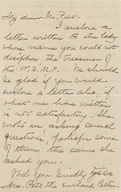 My dear Mr. Pess:
I enclose a
letter written to the lady
whose name you could not
decipher, the Treasurer of
the W.D.M.P. We should
be glad if you would
enclose a letter also, if
what we have written
is not satisfactory. She
sent us, asking several
questions, perhaps some
of them the same she
asked you.
Will you kindly
Mrs. Pratt the enclosed letter